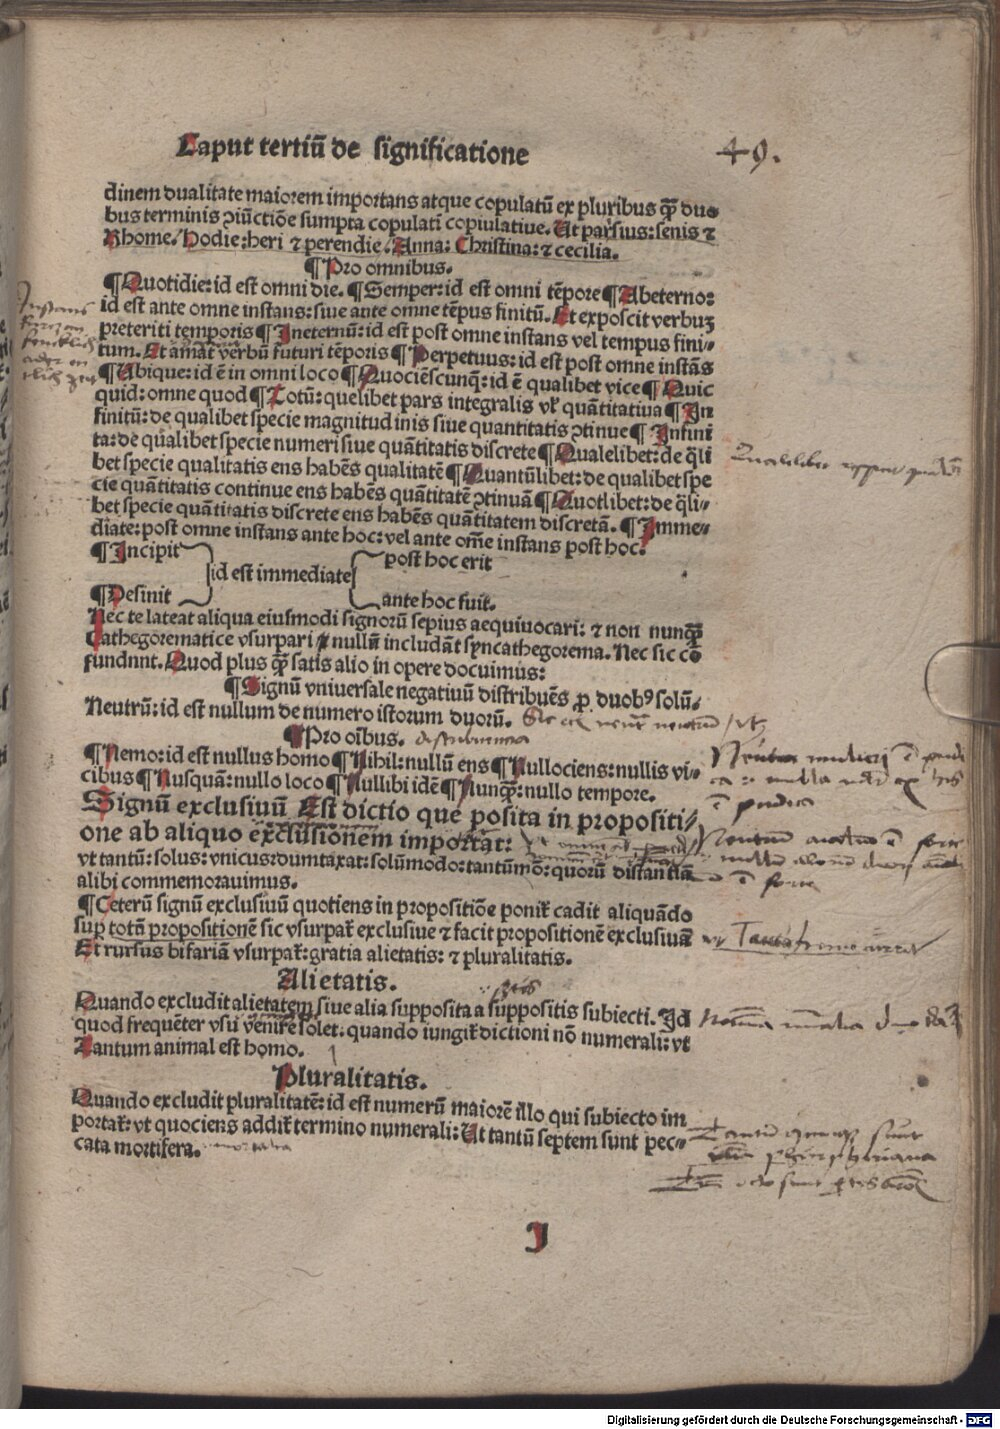 Caput tertiū de significatione
49.
dinem dualitate maiorem importans atque copulatū ex pluribus q̄ȝ duo
bus terminis ꝯiūctiōe sumpta copulati copiulatiue. Ut parisius: senis ⁊
Rhome. Hodie: heri ⁊ perendie. Anna: Christina: ⁊ cecilia.
¶Pro omnibus.
¶Quotidie: id est omni die. ¶Semper: id est omni tēpore ¶Abeterno:
id est ante omne instans: siue ante omne tēpus finitū. Et exposcit verbuȝ
preteriti temporis ¶Ineternū: id est post omne instans vel tempus fini-
tum. Et amat verbū futuri tēporis ¶Perpetuus: id est post omne instās
¶Ubique: id ē in omni loco ¶Quociēscunqȝ: id ē qualibet vice ¶Quic
quid: omne quod ¶Totū: quelibet pars integralis vł quātitatiua ¶In
finitū: de qualibet specie magnitudinis siue quantitatis ꝯtinue ¶Infini
ta: de qualibet specie numeri siue quātitatis discrete ¶Qualelibet: de q̄li
bet specie qualitatis ens habēs qualitatē ¶Quantūlibet: de qualibet spe
cie quātitatis continue ens habēs quātitatē ꝯtinuā ¶Quotlibet: de q̄li-
bet specie quātitatis discrete ens habēs quātitatem discretā. ¶Imme-
diate: post omne instans ante hoc: vel ante om̄e instans post hoc.
¶Incipit
post hoc erit
id est immediate
¶Desinit
ante hoc fuit.
Nec te lateat aliqua eiusmodi signorū sepius aequiuocari: ⁊ non nunq̄ȝ
cathegorematice vsurpari ⁊ nullū includāt syncathegorema. Nec sic cō
fundnnt. Quod plus q̄ȝ satis alio in opere docuimus:
¶Signū vniuersale negatiuū distribuēs ꝓ duobꝰ solū-
Neutrū: id est nullum de numero istorum duorū.
¶Pro oībus.
¶Nemo: id est nullus homo ¶Nihil: nullū ens ¶Nullociens: nullis vi-
cibus ¶Nusquā: nullo loco ¶Nullibi idē ¶Nunqȝ: nullo tempore.
Signū exclusiuū Est dictio que posita in propositi-
one ab aliquo exclusionem importat:
vt tantū: solus: vnicus: dumtaxat: solūmodo: tantūmō: quorū distantiā
alibi commemorauimus.
¶Ceterū signū exclusiuū quotiens in propositiōe ponit̄ cadit aliquādo
sup totū propositionē sic vsurpat̄ exclusiue ⁊ facit propositionē exclusiuā
Et rursus bifariā vsurpat̄: gratia alietatis: ⁊ pluralitatis.
Alietatis.
Quando excludit alietatem siue alia supposita a suppositis subiecti. Id
quod frequēter vsu venire solet: quando iungit̄ dictioni nō numerali: vt
Tantum animal est homo.
Pluralitatis.
Quando excludit pluralitatē: id est numerū maiorē illo qui subiecto im
portat̄: vt quociens addit̄ termino numerali: Ut tantū septem sunt pec-
cata mortifera.
J
Digitalisierung gefördert durch die Deutsche Forschungsgemeinschaft - DFG